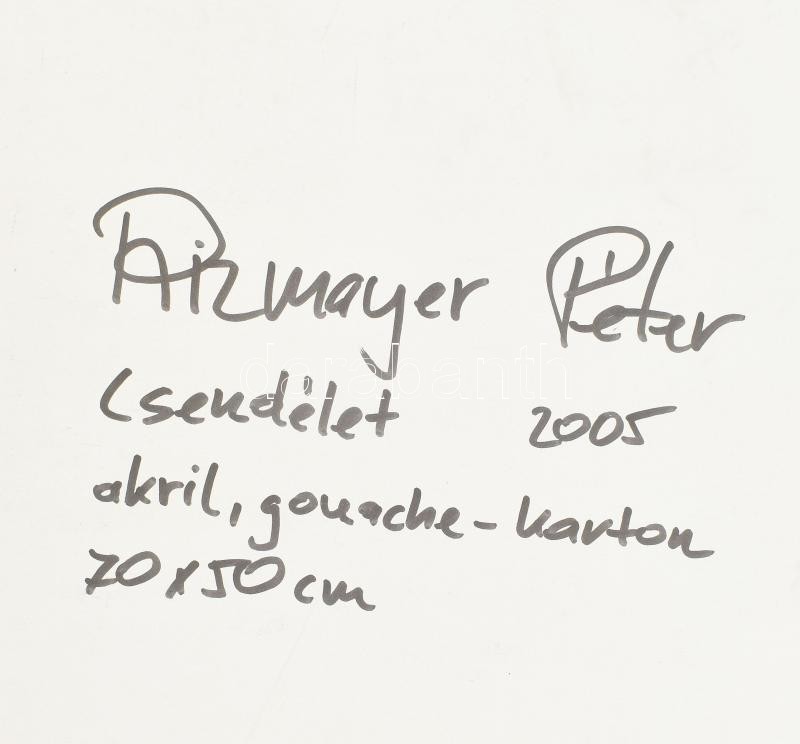 Péter
Csendélet 2005
akril, gouache-karton
70x50 cm
darabanth